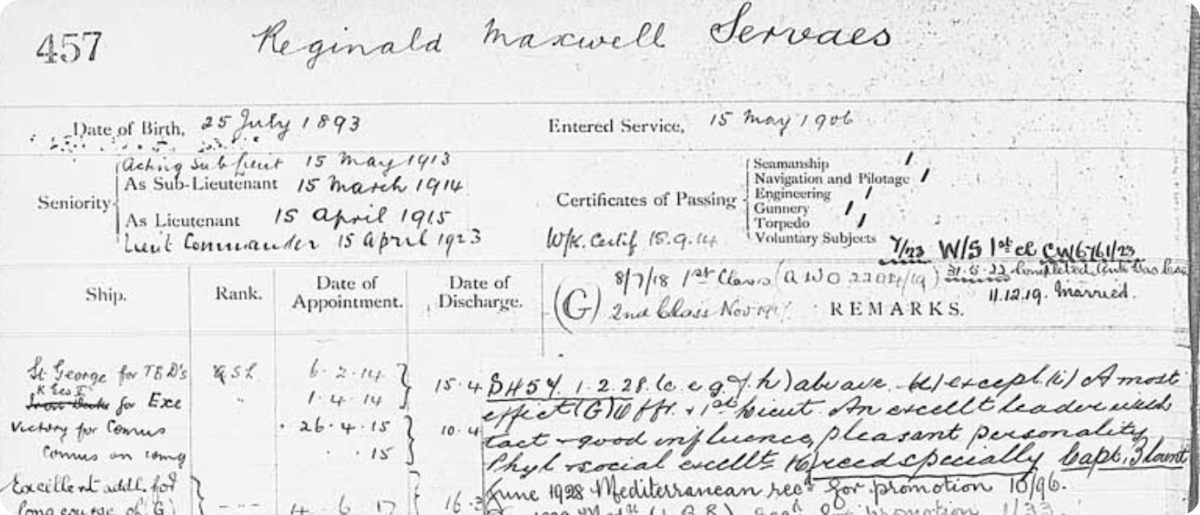 457
Reginald Maxwell Servaes
Date of Birth, 25 July 1893
Entered Service, 15 May 1906
Seniority
Acting Sub Lieut 15 May 1913
As Sub-Lieutenant 15 March 1914
As Lieutenant 15 April 1915
Lieut Commander 15 April 1923
Certificates of Passing
Seamanship
Navigation and Pilotage
Engineering
Gunnery
Torpedo
Voluntary Subjects
W/K. Certif 15.9.14
7/23 W/S 1st cl CW6761/23
31.5.22 Completed Anti Gas
11.12.19. Married.
Ship.
Rank.
Date of Appointment.
Date of Discharge.
(G) 8/7/18 1st Class (AWO
2nd Class Nov
REMARKS.
St George for TBD's
6.2.14
15.4
for Exe
1.4.14
Victory for Comus
26.4.15
10.4
Comus on comg
.15
Excellent addl. for
long course of (G)
4.6.17
16.3
1.2.28. above. except. A most
effect (G) Offr. + 1st Lieut. An excellt leader with
tact + good influence, pleasant personality
Phyl + social excellt recd specially Capt. Blount
June 1928 Mediterranean recd for promotion 10/96.
promotion 1/33